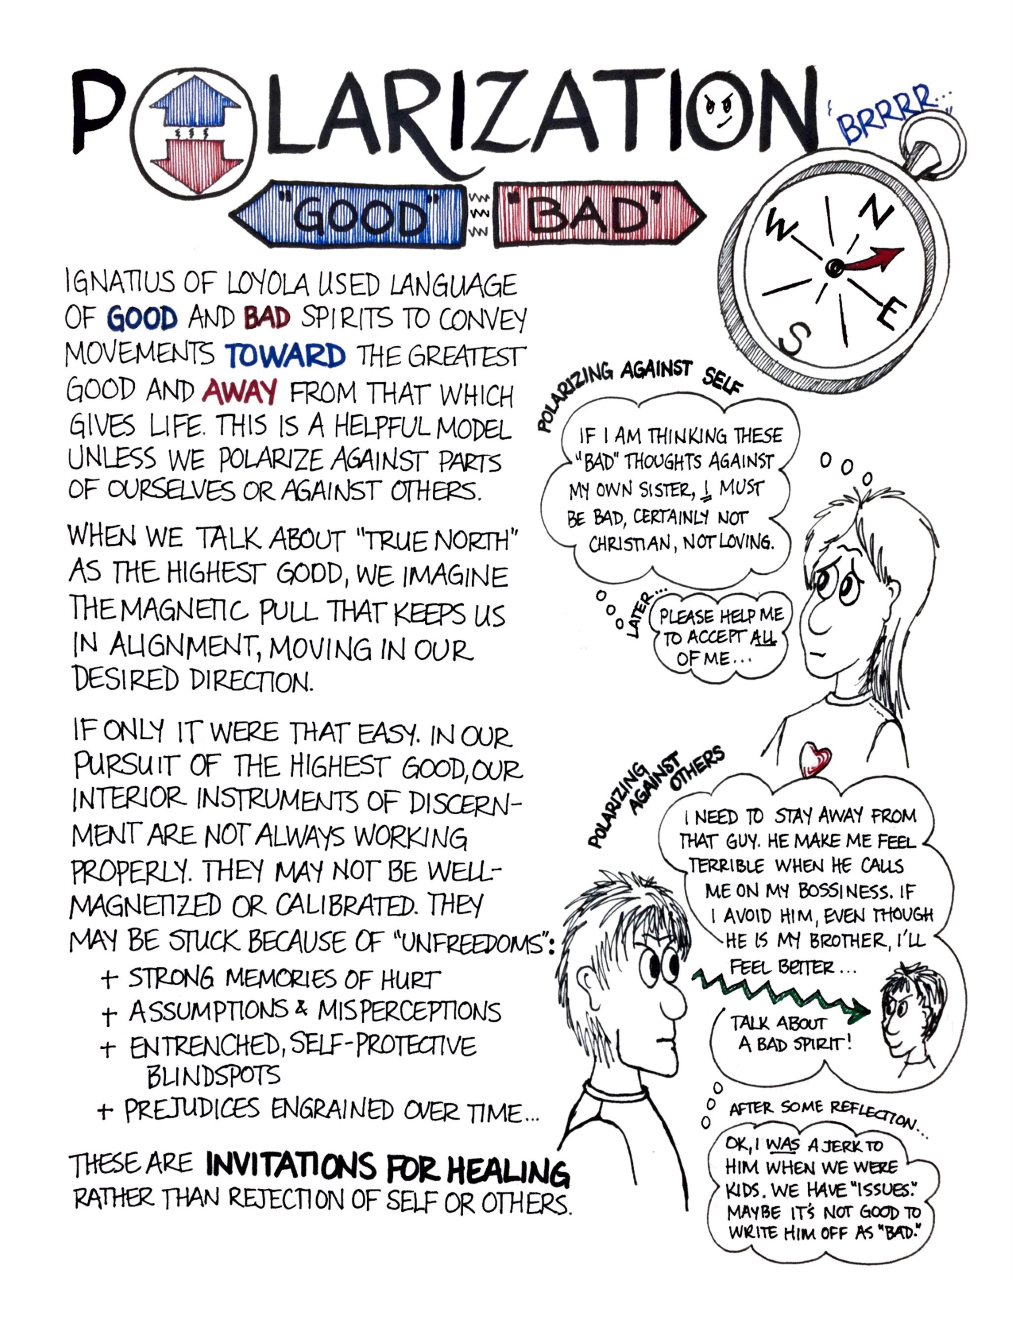 POLARIZATION
"GOOD" "BAD"
"BRRRR..."
N
W
E
S
IGNATIUS OF LOYOLA USED LANGUAGE
OF GOOD AND BAD SPIRITS TO CONVEY
MOVEMENTS TOWARD THE GREATEST
GOOD AND AWAY FROM THAT WHICH
GIVES LIFE. THIS IS A HELPFUL MODEL
UNLESS WE POLARIZE AGAINST PARTS
OF OURSELVES OR AGAINST OTHERS.
WHEN WE TALK ABOUT "TRUE NORTH"
AS THE HIGHEST GOOD, WE IMAGINE
THE MAGNETIC PULL THAT KEEPS US
IN ALIGNMENT, MOVING IN OUR
DESIRED DIRECTION.
IF ONLY IT WERE THAT EASY. IN OUR
PURSUIT OF THE HIGHEST GOOD, OUR
INTERIOR INSTRUMENTS OF DISCERN-
MENT ARE NOT ALWAYS WORKING
PROPERLY. THEY MAY NOT BE WELL-
MAGNETIZED OR CALIBRATED. THEY
MAY BE STUCK BECAUSE OF "UNFREEDOMS":
+ STRONG MEMORIES OF HURT
+ ASSUMPTIONS & MISPERCEPTIONS
+ ENTRENCHED, SELF-PROTECTIVE
BLINDSPOTS
+ PREJUDICES ENGRAINED OVER TIME...
THESE ARE INVITATIONS FOR HEALING
RATHER THAN REJECTION OF SELF OR OTHERS.
POLARIZING AGAINST SELF
IF I AM THINKING THESE
"BAD" THOUGHTS AGAINST
MY OWN SISTER, I MUST
BE BAD, CERTAINLY NOT
CHRISTIAN, NOT LOVING.
LATER...
PLEASE HELP ME
TO ACCEPT ALL
OF ME...
POLARIZING
AGAINST
OTHERS
I NEED TO STAY AWAY FROM
THAT GUY. HE MAKE ME FEEL
TERRIBLE WHEN HE CALLS
ME ON MY BOSSINESS. IF
I AVOID HIM, EVEN THOUGH
HE IS MY BROTHER, I'LL
FEEL BETTER...
TALK ABOUT
A BAD SPIRIT!
AFTER SOME REFLECTION...
OK, I WAS A JERK TO
HIM WHEN WE WERE
KIDS. WE HAVE "ISSUES."
MAYBE IT'S NOT GOOD TO
WRITE HIM OFF AS "BAD."